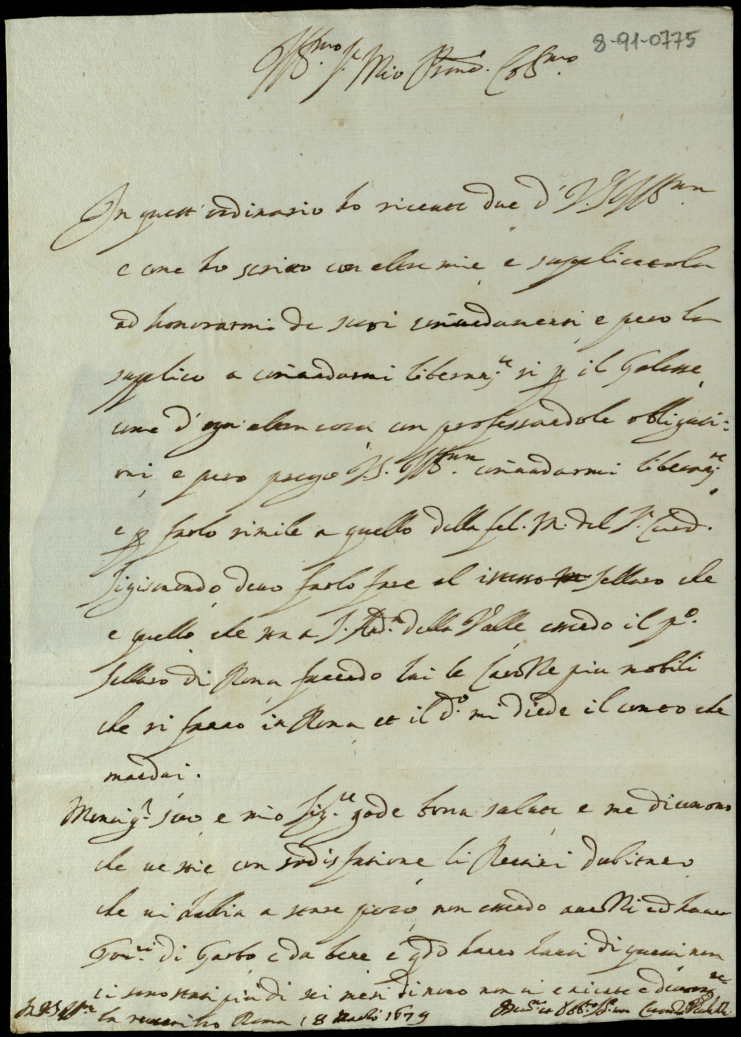 8-91-0775
Ill.mo S.r Mio Pron.e Col.mo
In quest'ordinario ho riceuute due d' V.S. Ill.ma
e come ho scritto con altre mie e supplicatola
ad honorarmi de suoi com̃andamenti e pero la
supplico a com̃andarmi liberam.te si p il Galesse
come d'ogni altra cosa con professandole obligati:
oni e pero prego V.S. Ill.ma com̃andarmi liberam.te
e p farlo simile a quello della fel. M. del S.r Card.
Sigismondo deuo farlo fare al istesso sellaro che
e quello che sta a S. And.a della Valle essendo il p.o
sellaro di Roma facendo lui le Carozze piu nobili
che si fanno in Roma et il d.o mi diede il conto che
mandai.
Monsig.r suo e mio Sig.re gode bona salute e me dicono
che ne stie con sodisfatione li
che ui habia a stare poco non essendo ed hauer
di Garbo e da bene e q̃do hanno hauti di questi non
ci sono stati piu di sei mesi di meno non ui e
D V.S. Ill.ma
Roma 18 1679